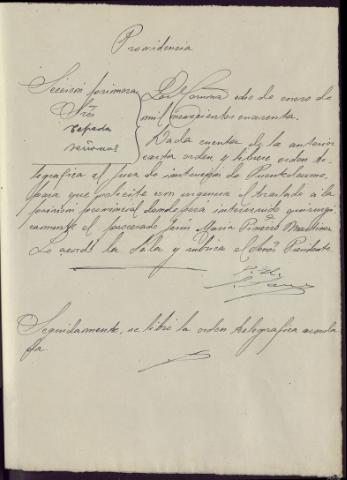 Providencia
Sección primera
Sres
Cepeda
La Coruña, dos de enero de
mil novecientos cuarenta.
Dada cuenta de la anterior
carta orden y librese orden te-
legrafica al juez de instrucción de Puentedeume,
para que solicite con urgencia el traslado a la
prisión provincial donde será intervenido quirurgi
camente el procesado Jesús María Piñeiro Martinez
Lo acordó la Sala y rubrica el Señor Presidente
Seguidamente, se libró la orden telegrafica acorda
da